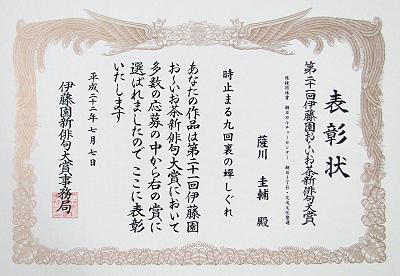 表彰状
第二十一回伊藤園お〜いお茶新俳句大賞
後援団体賞 朝日カルチャーセンター 朝日JTB・交流文化塾選
薩川 圭輔 殿
時止まる九回裏の蝉しぐれ
あなたの作品は第二十一回伊藤園
お〜いお茶新俳句大賞において
多数の応募の中から右の賞に
選ばれましたので ここに表彰
いたします
平成二十二年七月七日
伊藤園新俳句大賞事務局